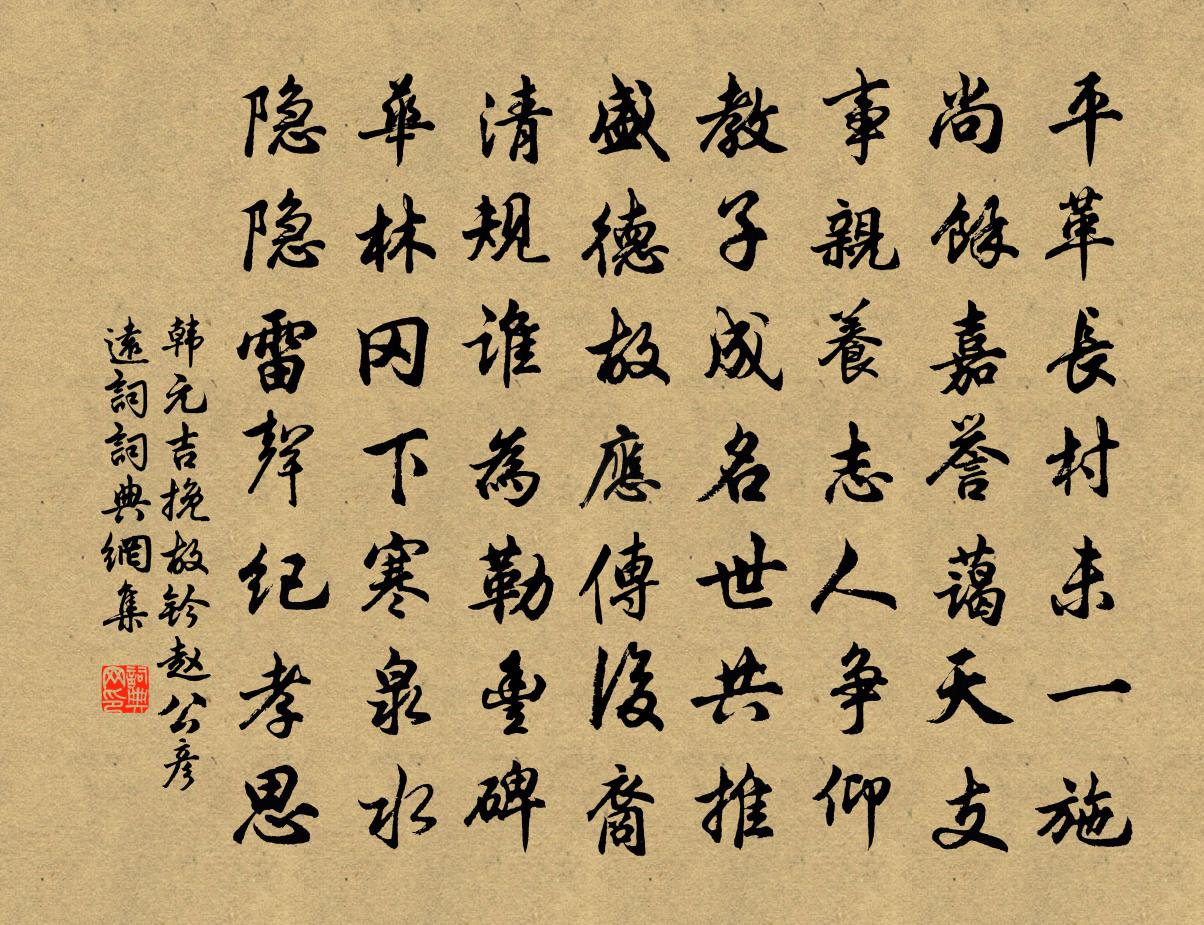 平革長村未一施
尚餘嘉誉藹天支
事親養志人争仰
教子成名世共推
盛德故應傳後裔
清規谁為勒豊碑
華林冈下寒泉水
隐隐雷聲纪孝思
韩元吉挽故鈴赵公彦
遠詞詞典網集
詞典
网印